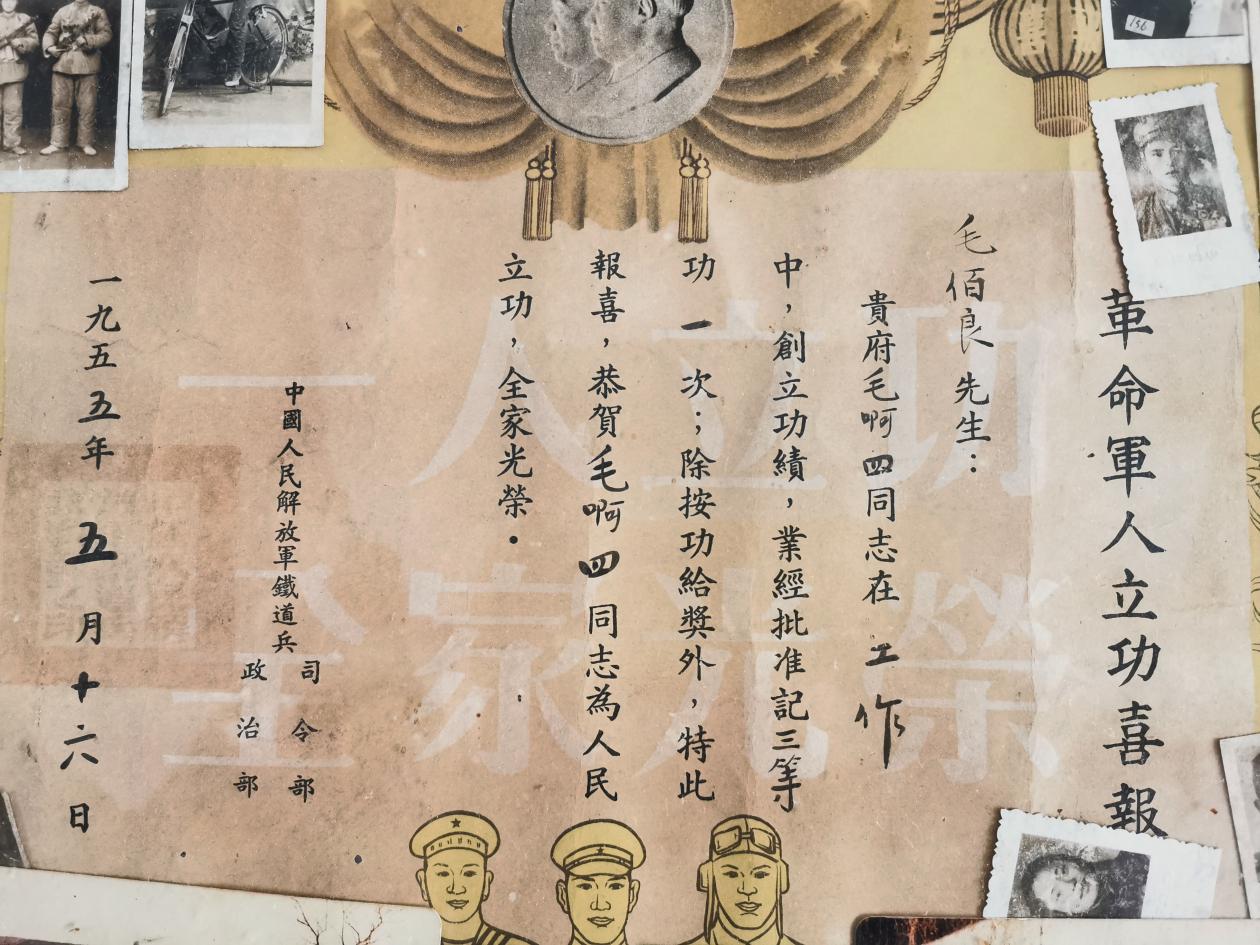 革命軍人立功喜報
毛佰良先生：
貴府毛啊四同志在工作
中，創立功績，業經批准記三等
功一次；除按功給獎外，特此
報喜，恭賀毛啊四同志為人民
立功，全家光榮．
中國人民解放軍鐵道兵
司令部
政治部
一九五五年五月十六日
一人立功
全家光榮
156